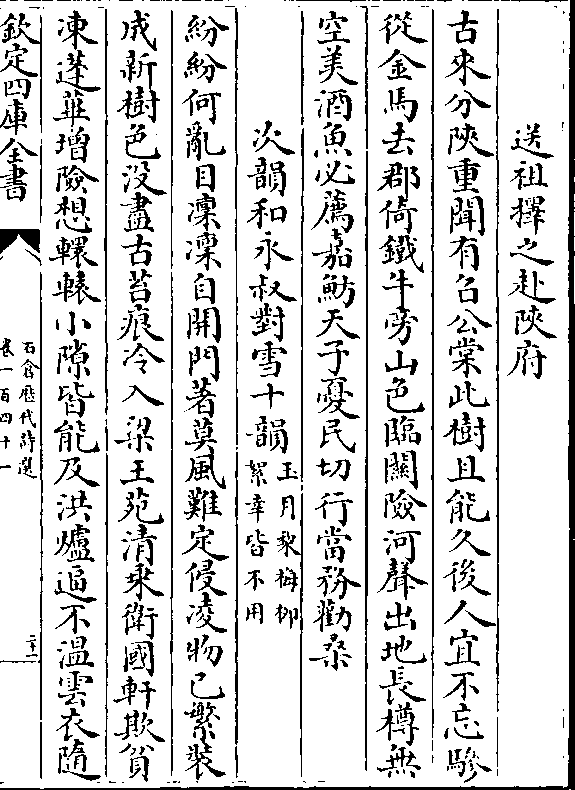 送祖擇之赴陜府
古來分陜重聞有召公棠此樹且能久後人宜不忘驂
從金馬去郡倚鐵牛旁山色臨關險河聲出地長樽無
空美酒魚必薦嘉魴天子憂民切行當務勸桑
次韻和永叔對雪十韻玉月梨梅柳絮幸皆不用
紛紛何亂目凜凜自開門著莫風難定侵凌物已繁裝
成新樹色没盡古苔痕冷入梁王苑清乘衛國軒欺貧
凍蓬蓽增險想轘轅小隙皆能及洪爐逼不溫雲衣隨
欽定四庫全書
石倉歷代詩選
卷一百四十一
二十二